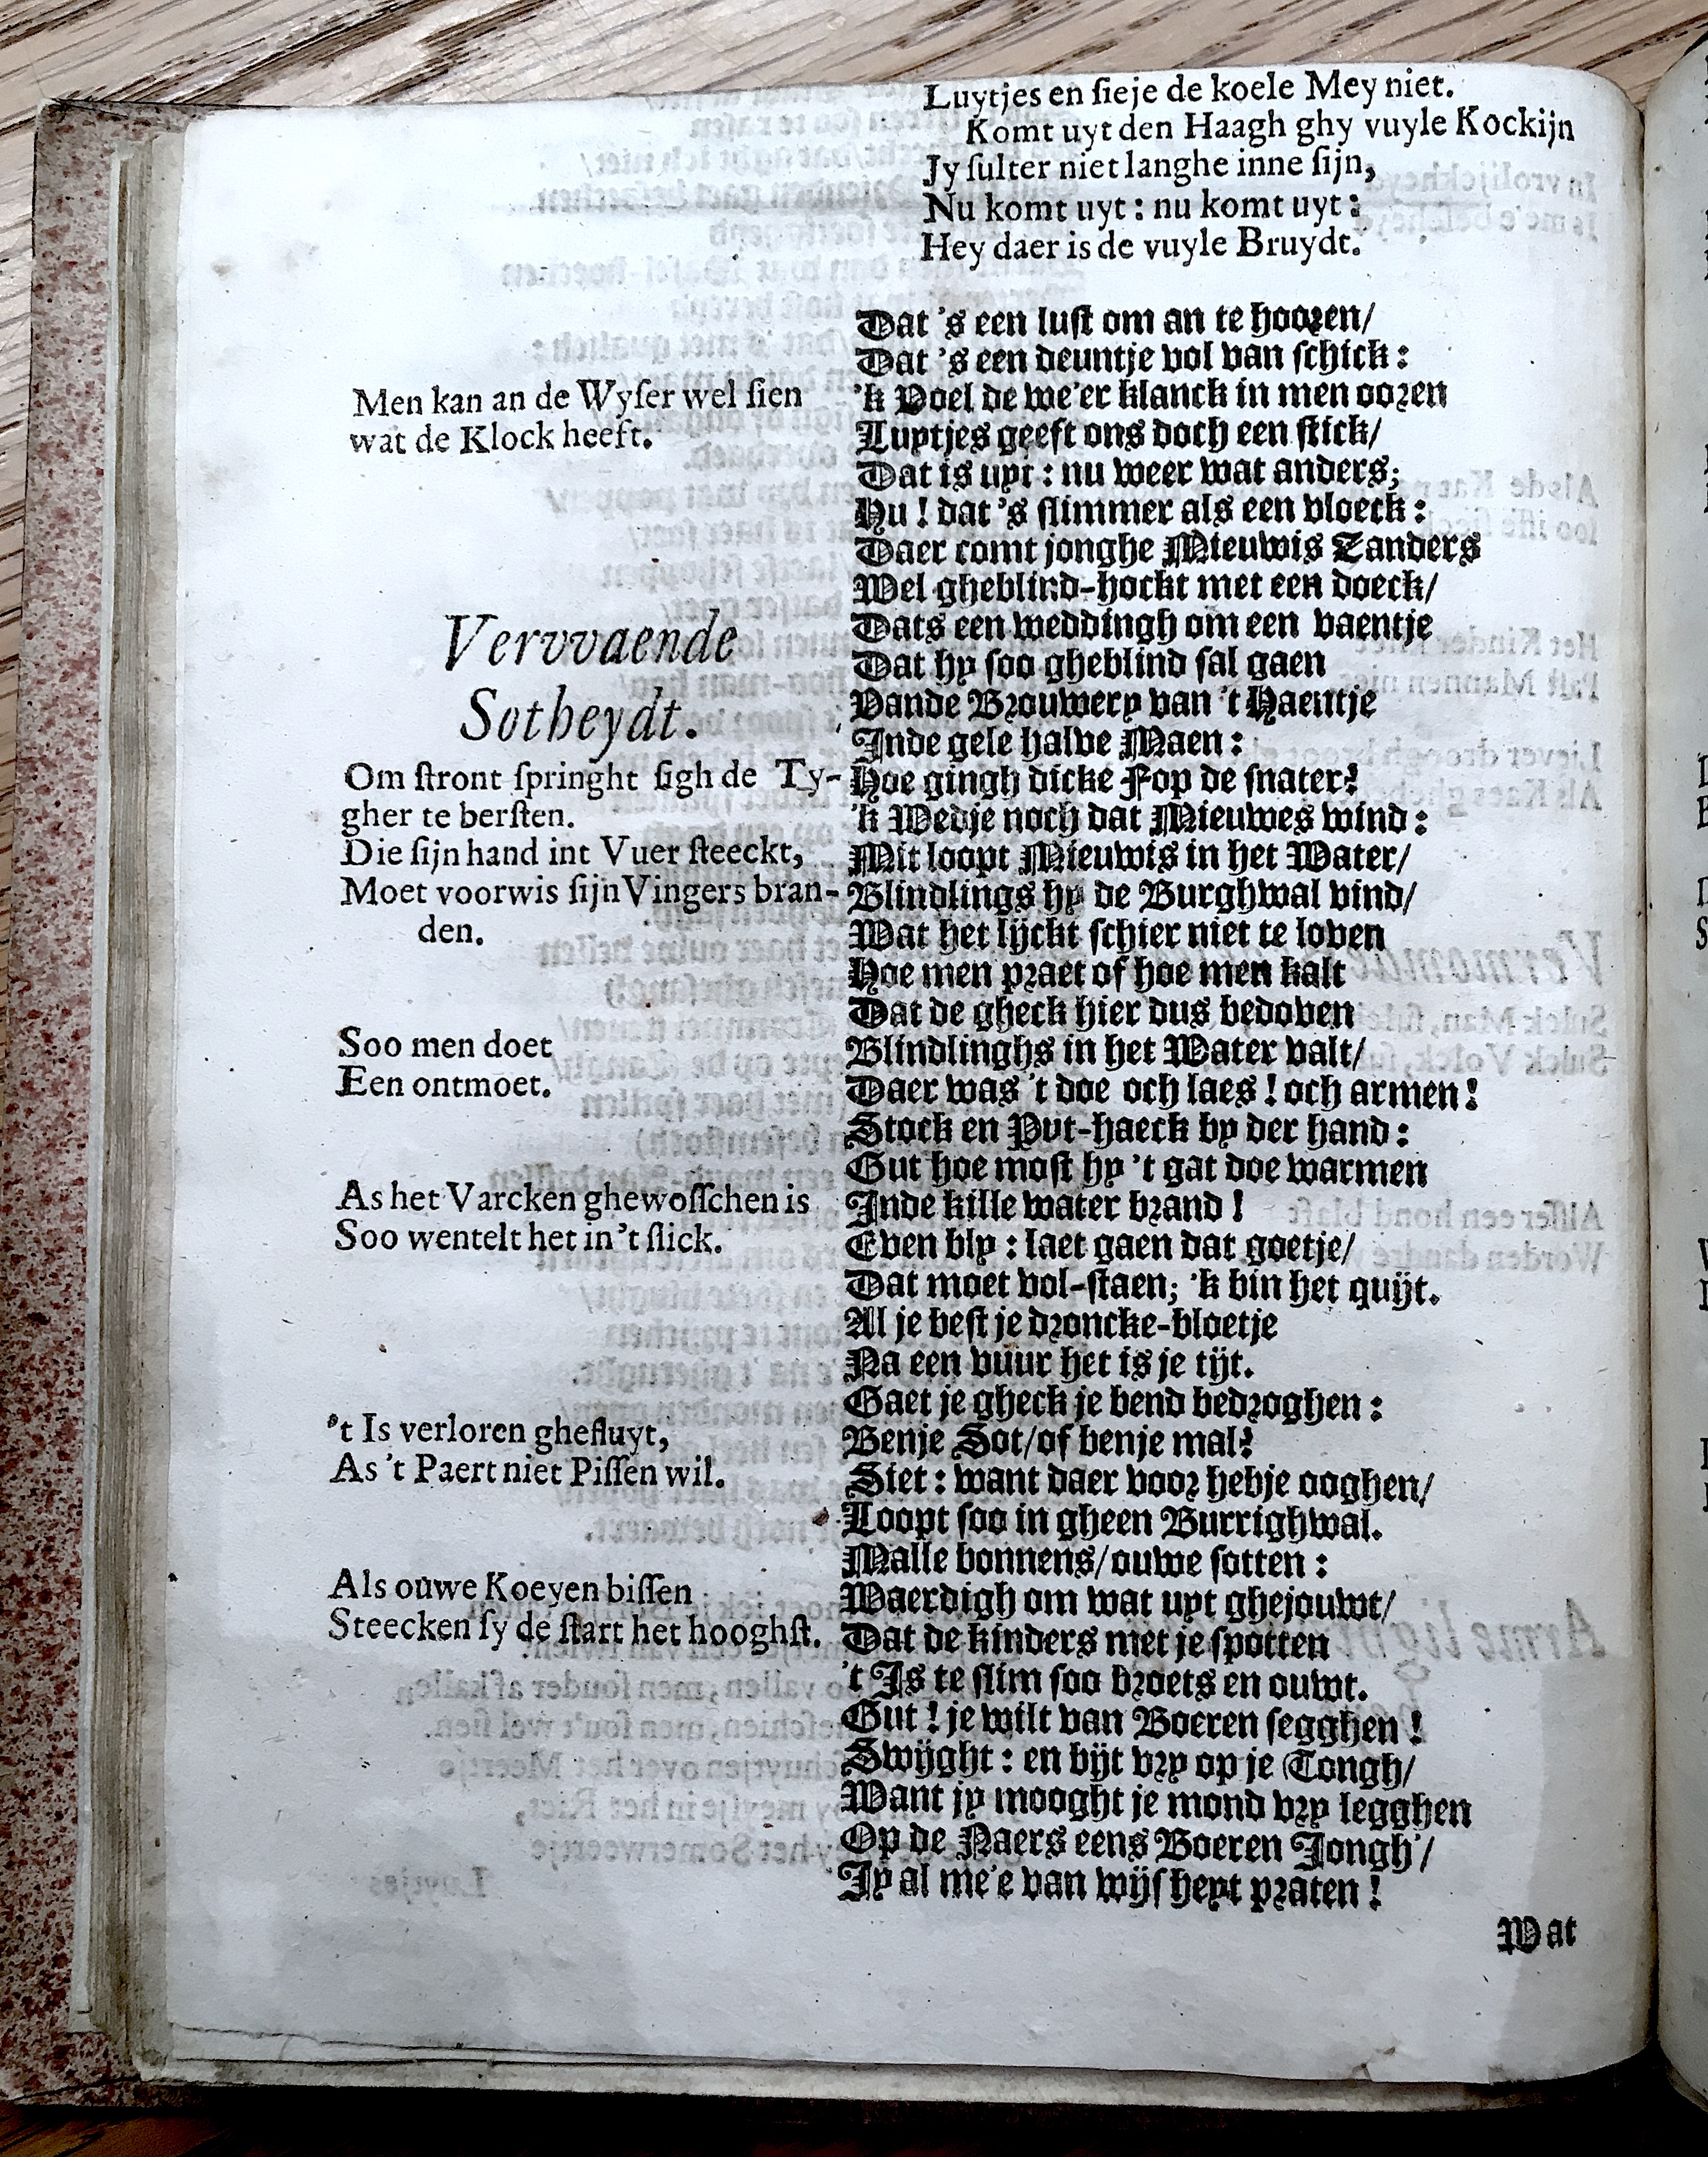 Luytjes en ſieje de koele Mey niet.
Komt uyt den Haagh ghy vuyle Kockijn
Jy ſulter niet langhe inne ſijn,
Nu komt uyt : nu komt uyt :
Hey daer is de vuyle Bruydt.
Men kan an de Wyſer wel ſien
wat de Klock heeft.
Vervvaende
Sotheydt.
Om ſtront ſpringht ſigh de Ty-
gher te berſten.
Die ſijn hand int Vuer ſteeckt,
Moet voorwis ſijn Vingers bran-
den.
Soo men doet
Een ontmoet.
As het Varcken ghewoſſchen is
Soo wentelt het in 't ſlick.
't Is verloren ghefluyt,
As 't Paert niet Piſſen wil.
Als ouwe Koeyen biſſen
Steecken ſy de ſtart het hooghſt.
Dat 's een luſt om an te hooren/
Dat 's een deuntje vol van ſchick :
'k Voel de we'er klanck in men ooren
Luytjes geeft ons doch een ſtick/
Dat is uyt : nu weer wat anders;
Hu ! dat 's ſlimmer als een vloeck :
Daer comt jonghe Mieuwis Tanders
Wel gheblind-hockt met een doeck/
Dats een weddingh om een vaentje
Dat hy ſoo gheblind ſal gaen
Vande Brouwery van 't Haentje
Inde gele halve Maen :
Hoe gingh dicke Fop de ſnater?
'k Wedje noch dat Mieuwes wind :
Mit loopt Mieuwis in het Water/
Blindlings hy de Burghwal vind/
Wat het lijckt ſchier niet te loven
Hoe men praet of hoe men kalt
Dat de gheck hier dus bedoven
Blindlinghs in het Water valt/
Daer was 't doe och laes ! och armen !
Stock en Put-haeck by der hand :
Gut hoe moſt hy 't gat doe warmen
Inde kille water brand !
Even bly : laet gaen dat goetje/
Dat moet vol-ſtaen; 'k bin het quijt.
Al je beſt je droncke-bloetje
Na een vuur het is je tijt.
Gaet je gheck je bend bedroghen :
Benje Sot/of benje mal?
Siet : want daer voor hebje ooghen/
Loopt ſoo in gheen Burrighwal.
Malle bonnens/ouwe ſotten :
Waerdigh om wat uyt ghejouwt/
Dat de kinders met je ſpotten
't Is te ſlim ſoo broets en ouwt.
Gut ! je wilt van Boeren ſegghen !
Swijght : en bijt vry op je Tongh/
Want jy mooght je mond vry legghen
Op de Naers eens Boeren Jongh'/
Jy al me'e van wijſheyt praten !
Wat